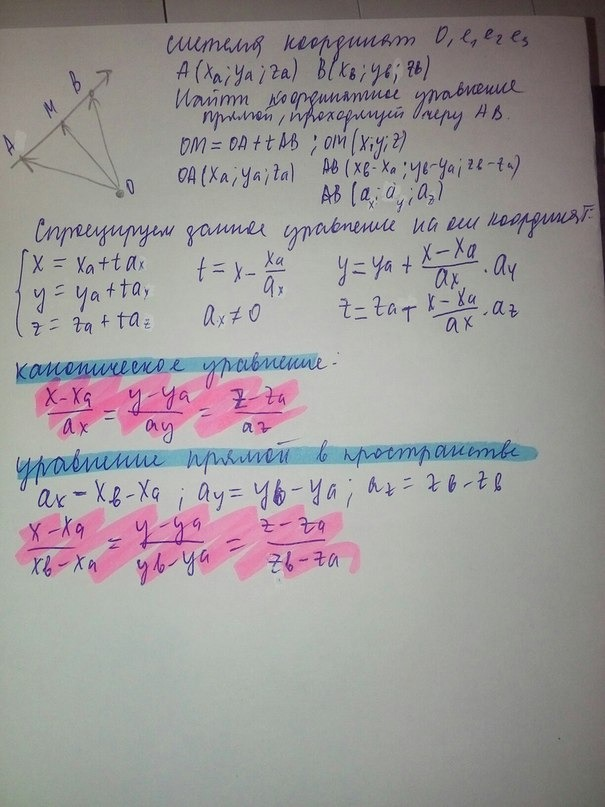 система координат O, e₁ e₂ e₃
A(xa; ya; za) B(xb; yb; zb)
Найти координатное уравнение
прямой, проходящей черу AB.
OM = OA + tAB ; OM(x; y; z)
OA(xa; ya; za) AB(xb-xa; yb-ya; zb-za)
AB(ax; ay; az)
A M B O
Спроецируем данное уравнение на оси координат:
x = xa + tax
y = ya + tay
z = za + taz
t = x - xa/ax
ax ≠ 0
y = ya + (x - xa)/ax · ay
z = za + (x - xa)/ax · az
каноническое уравнение:
(x - xa)/ax = (y - ya)/ay = (z - za)/az
уравнение прямой в пространстве
ax = xb - xa ; ay = yb - ya ; az = zb - zb
(x - xa)/(xb - xa) = (y - ya)/(yb - ya) = (z - za)/(zb - za)